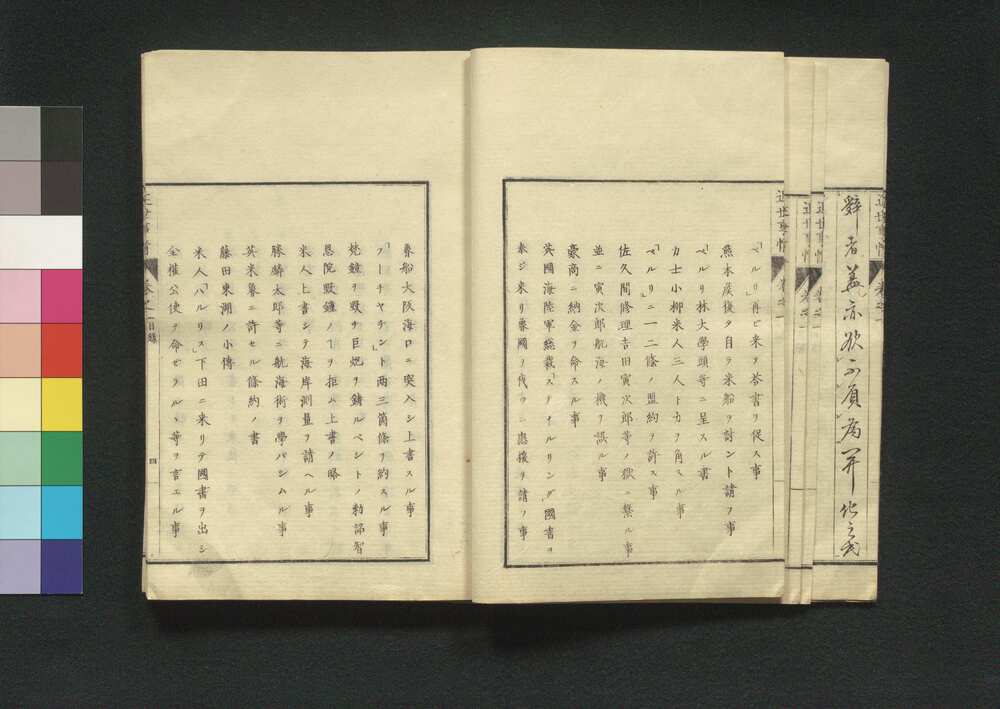 辭者蓋亦欲不負為開化之民
近世事情
「ペルリ」再ヒ来ヲ荅書ヲ促ス事
熊本侯後ヲ自ラ米船ヲ討ント請フ事
「ペルリ」林大學頭等ニ呈スル書
力士小柳米人三人ト力ヲ角スル事
「ペルリ」ニ一二條ノ盟約ヲ許ス事
佐久間修理吉田寅次郎等ノ獄ニ繋ル事
並ニ寅次郎航海ノ機ヲ誤ル事
豪商ニ納金ヲ命スル事
英國海陸軍総裁「スティルリング」國書ヲ
奉ジ来リ魯國ヲ伐ツニ應援ヲ請フ事
魯船大阪海口ニ突入シ上書スル事
「プーチヤチント」両三箇條ヲ約スル事
梵鐘ヲ毀チ巨炮ヲ鋳ルベシトノ勅詔智
恩院毀鐘ノ﹁ヲ拒ム上書ノ略
米人上書シテ海岸測量ヲ請ヘル事
勝麟太郎等ニ航海術ヲ學バシムル事
英米魯ニ許セル條約ノ書
藤田東湖ノ小傳
米人「ハルリス」下田ニ来リテ國書ヲ出シ
全権公使ヲ命セラルヽ等ヲ言エル事
目録
四